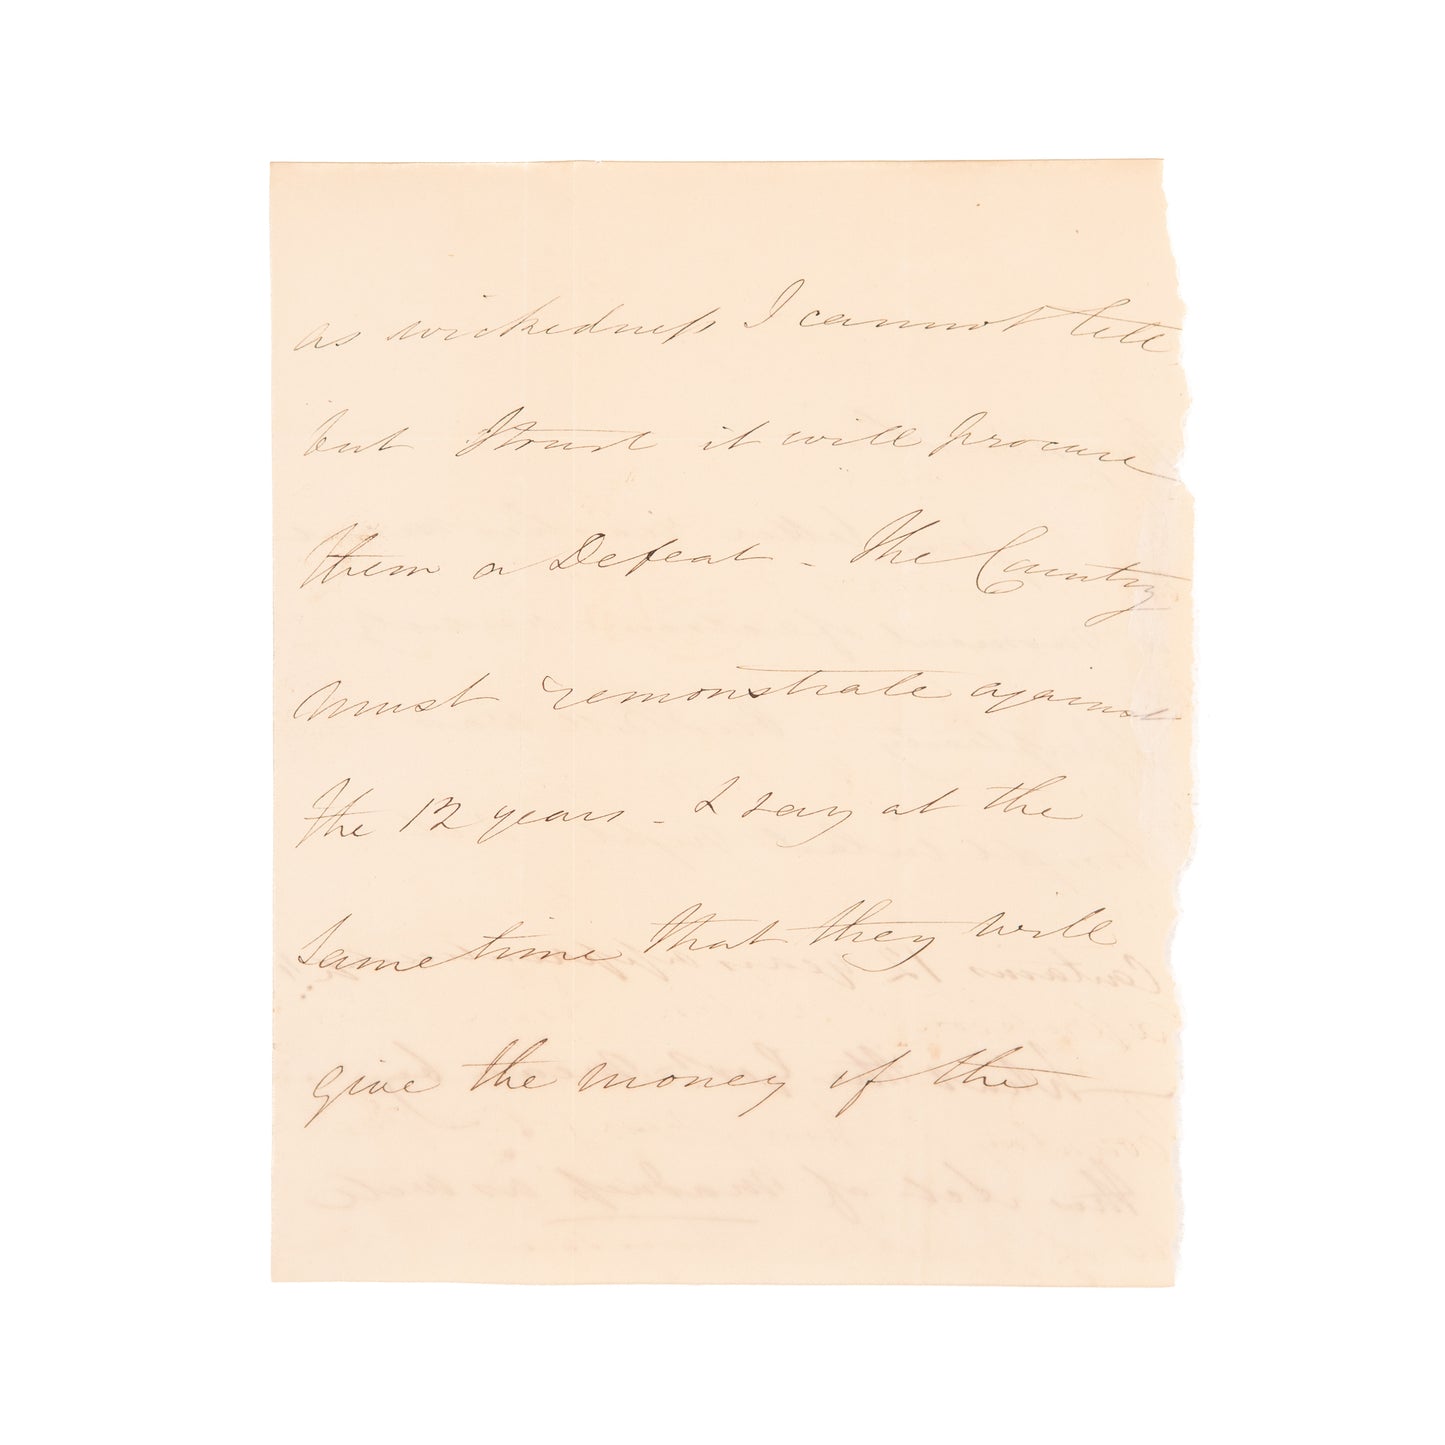 as wickedness I cannot tell
but I trust it will procure
them a Defeat - The Country
must remonstrate against
the 12 years - I say at the
same time that they will
give the money if the